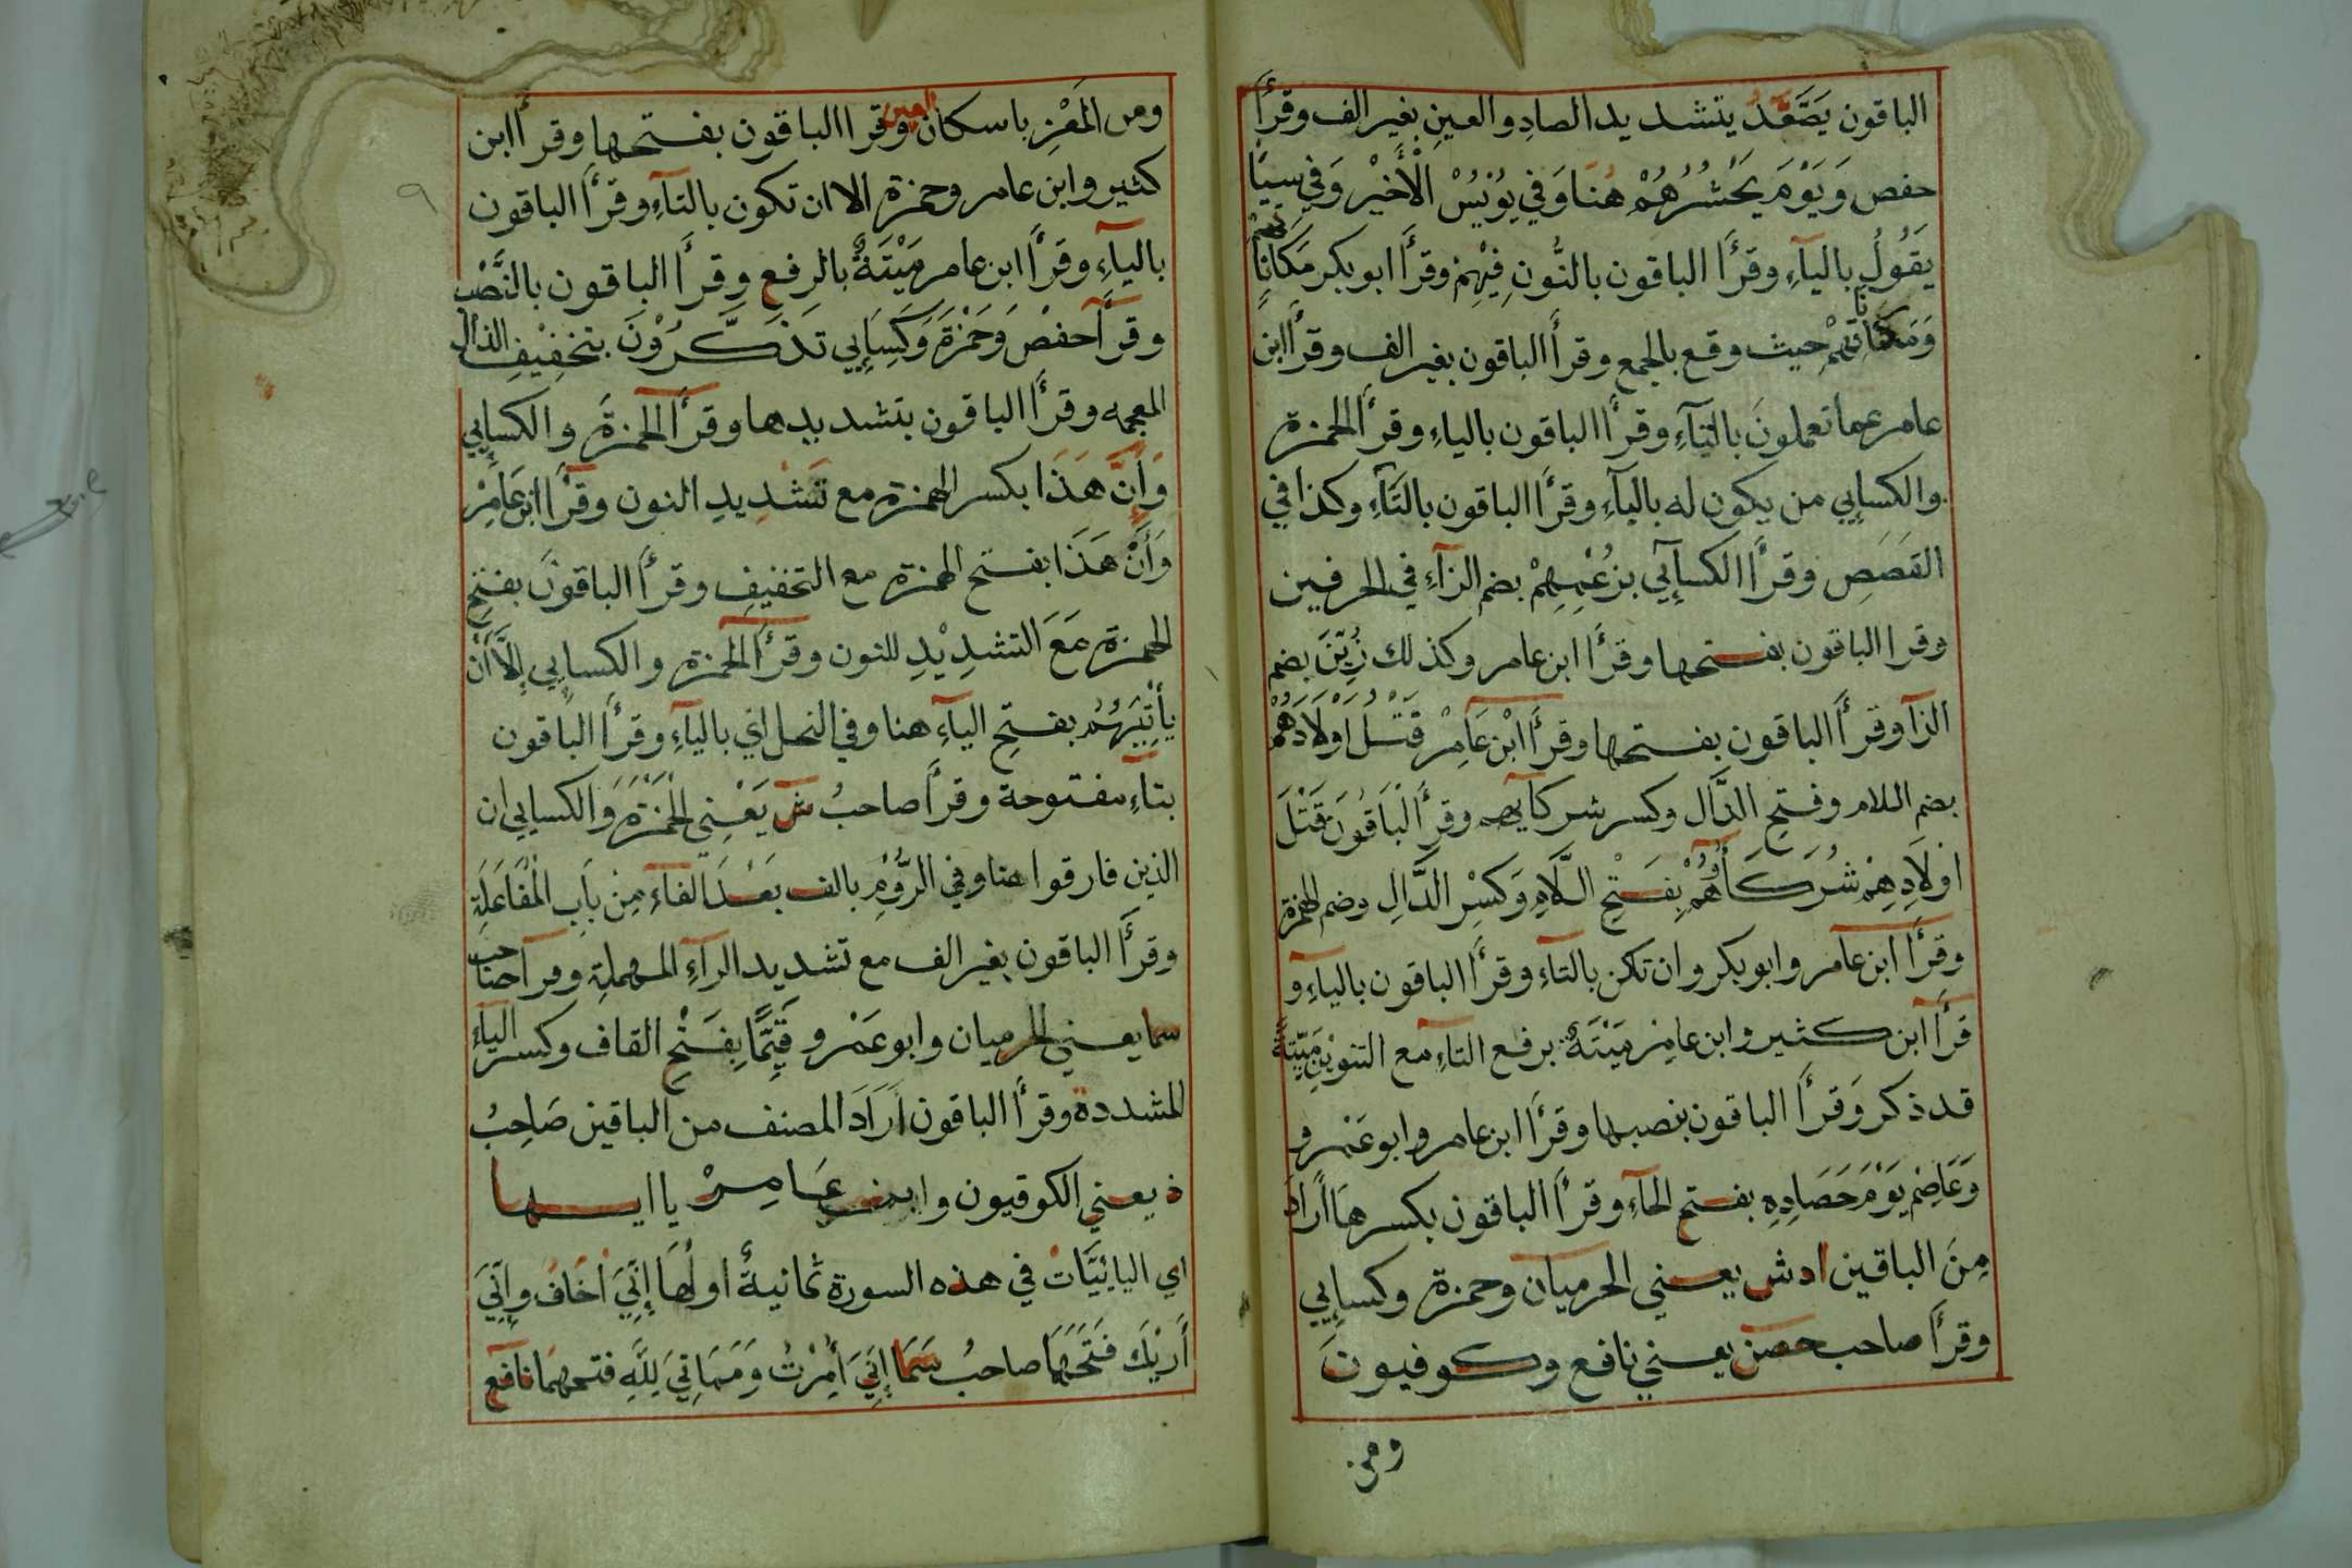 الباقون يَصَّعَّدُ يتشديد الصادِ والعينِ بغير الف وقرأ
حفص وَيَوْمَ يَحْشُرُهُمْ هُنَا وَفي يُونُسُ الْأَخِيْر وَفي سبا
يَقُولُ بالياءِ وقرأ الباقون بالنُّونِ فِيْهِمْ وقرأ ابو بكر مَكَانَاتِهِمْ
حيث وقع بالجمع وقرأ الباقون بغير الف وقرأ ابن
عامر عما تعملونَ بالتآءِ وقرأ الباقون بالياءِ وقرأ الحمزة
والكسايي من يكون له باليآءِ وقرأ الباقون بالتآءِ وكذا في
القَصَصِ وقرأ الكسآيي بزُعْمِهِمْ بضم الزآءِ في الحرفين
وقرا الباقون بفتحها وقرأ ابن عامر وكذلك زُيِّنَ بضم
الزآ وقرأ الباقون بفتحها وقرأ ابْن عَامِرْ قَتْلُ اَوْلَادَهُمْ
بضم اللام وفتحِ الدَّال وكسر شركآيهم وقرأ الْبَاقُونَ قَتْلَ
اَوْلَادِهِمْ شُرَكَآؤُهُمْ بِفَتْحِ الَّلامِ وَكَسْرِ الدَّالِ وضم الهمزة
وقرأ ابن عامر وابو بكر وان تكن بالتاءِ وقرأ الباقون بالياءِ و
قرأ ابن كثير وابن عامِرْ مَيْتَةٌ برفع التاءِ مع التنوينِ مَيّتَةٌ
قد ذكر وَقرأ الباقون بنصبها وقرأ ابن عامر وابو عَمْرو
وَعَاصِم يَوْمَ حَصَادِهِ بفتح الحآءِ وقرأ الباقون بكسرهَا أرَادَ
مِنَ الباقين ادش يعني الحرميان وحمزة وكسايي
وقرأ صاحب حصن يعني نافع وكوفيونَ
ومن
ومن المَعْزِ باسكان العين وقرا الباقون بفتحها وقرأ ابن
كثير وابن عامر وحمزة الا ان تكون بالتآءِ وقرأ الباقون
بالياءِ وقرأ ابن عامر مَيْتَةٌ بالرفع وقرأ الباقون بالنَّصْب
وقرأ حفصْ وَحَمْزَةَ وَكِسَايي تَذَكَّرُوْنَ بتخفِيْفِ الذال
المعجمه وقرأ الباقون بتشديدها وقرأ الحمزةَ والكسايي
وَإنَّ هَذَا بكسر الهمزة مع تَشْدِيدِ النون وقرأ ابن عَامِرْ
وَأَنْ هَذَا بفتح الهمزة مع التخفيفِ وقرأ الباقونَ بفتحِ
الهمزة مَعَ التشدِيْدِ للنون وقرأ الحمزة والكسايي إلَّا أَنْ
يأْتِيَهُمْ بفتحِ الياءِ هنا وفي النحل اي بالياءِ وقرأ الباقون
بتآءِ مفتوحة وقرأ صاحبُ ش يَعْنِي الحَمْزَةَ وَالكسايي ان
الذين فارقوا هنا وفي الرُّوْمِ بالف بَعْدَ الفاءِ مِنْ بَابِ الْمُفَاعَلَةِ
وقرأ الباقون بغير الف مع تشديد الرآءِ المهملةِ وقرأ صاحب
سما يعني الحرميان وابو عَمْرو قَيِّمًا بِفَتْحِ القاف وكسر الياءِ
المشددة وقرأ الباقون أرَادَ المصنف من الباقين صَاحِبُ
ذ يعني الكوفيون وابن عَامِرْ ياايها
اي اليايِيَّات في هذه السورة ثمانيةٌ اولُهَا إنِّيَ اخَافُ وإنِّيَ
أَرَيكَ فَتَحَهَا صاحبُ سَمَا إنِّيَ أُمِرْتُ وَمَمَاتِيَ لِلَّهِ فتحهمَا نافع